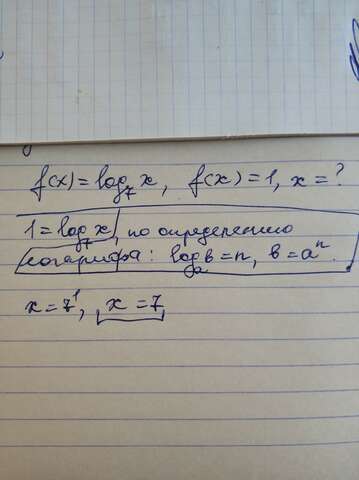 f(x) = log₇ x, f(x) = 1, x = ?
1 = log₇ x, по определению
логарифма: logₐ b = n, b = aⁿ.
x = 7¹, x = 7